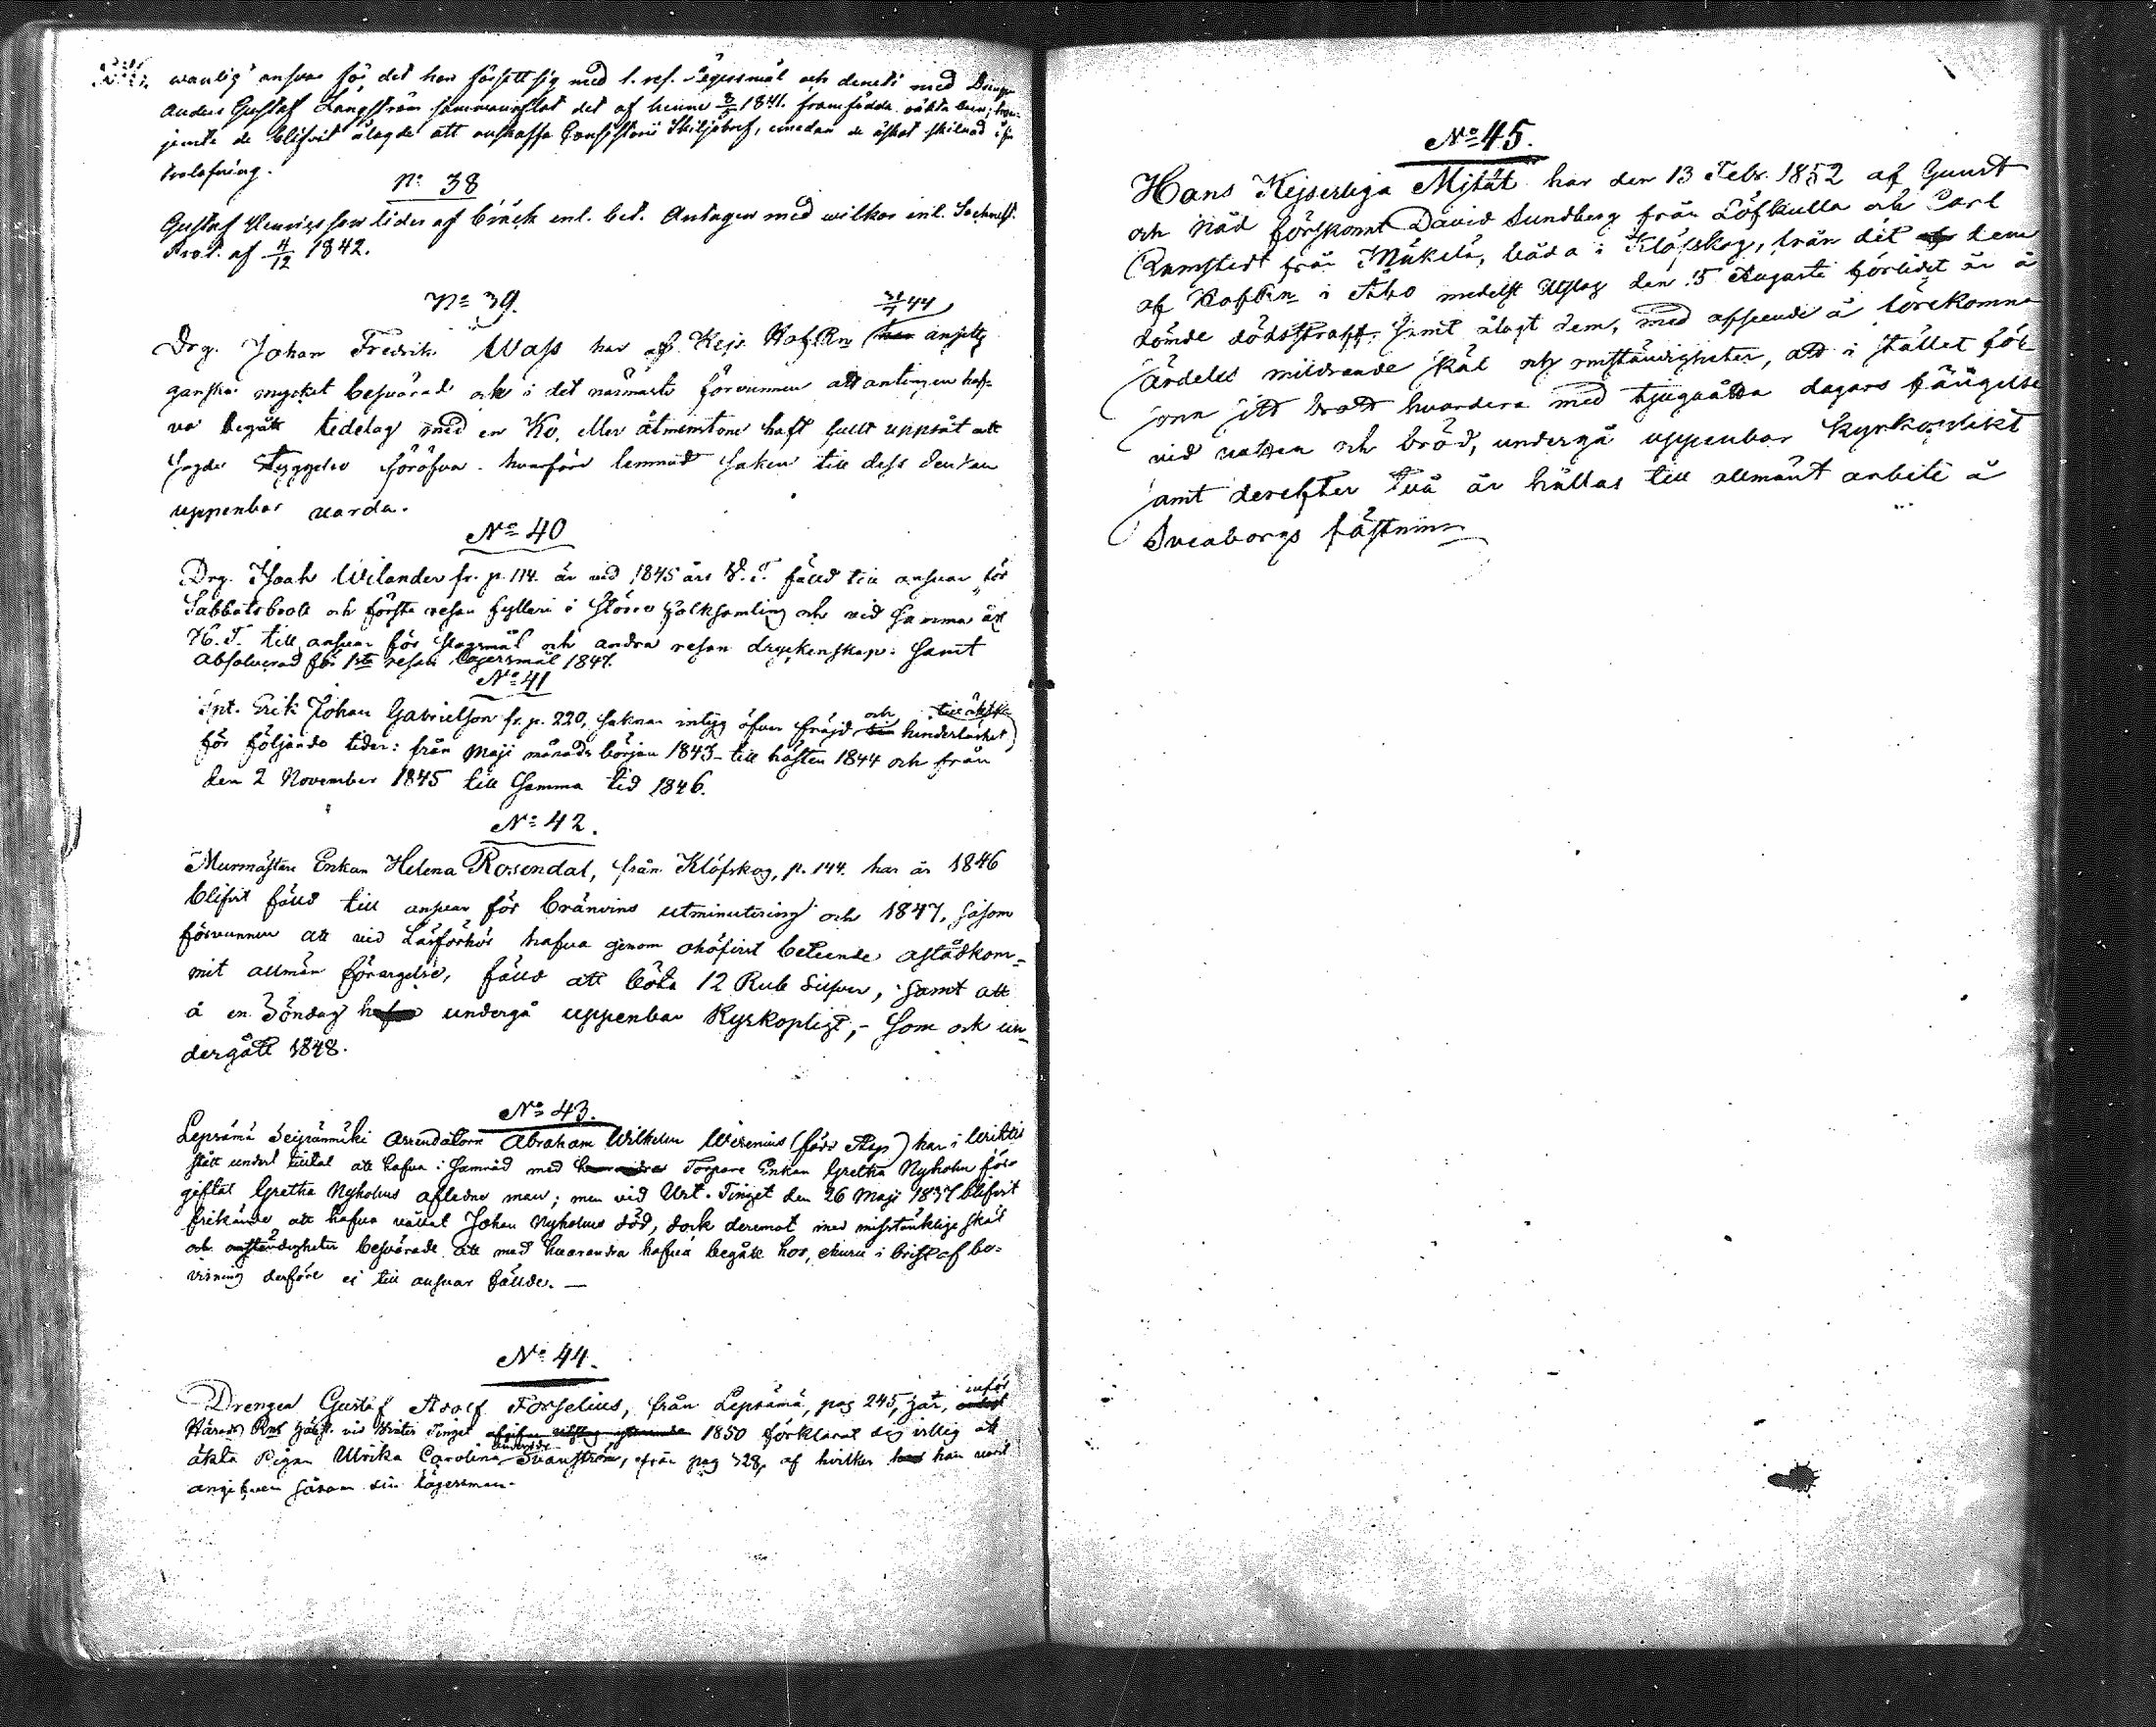 wanlig ansvar för det hon försett sig med l. res. lägersmål och dereti med Dreng
Anders Gustaf Långström sammanaflat det af henne 3/5 1841. framfödda oäkta barn;
jemte de blifvit ålagde att anskaffa Consistorii Skiljobref, emedan de äskat skilnad i sin
trolofning.
No 38
Gustaf Henricsson lider af bråck enl. bet. Antagen med wilkor enl. Socknest.
Prot. af 4/12 1842.
No 39. 31/7 44
Drg. Johan Fredrik Wass har af Kejs. HofRn han ansetts
ganska mycket besvärad och i det närmaste förvunnen att antingen haf-
va begått tidelag med en Ko, eller åtminstone haft fullt uppsåt att
sagde styggelse föröfva. hvarföre lemnad saken till dess den kan
uppenbar varda.
No 40
Drg. Isaak Welander fr. p. 114. är vid 1845 års V. T. fälld till ansvar för
Sabbatsbrott och första resan fylleri i större folksamling och vid samma års
H. T. till ansvar för slagsmål och andra resan dryckenskap. Samt
absolverad för 1sta resan lägersmål 1847.
No 41
Inh. Erik Johan Gabrielson fr. p. 220, saknar intyg öfver fräjd och hinderlöshet till äktsk.
för följande tider: från Maji månads början 1843 - till hösten 1844 och från
den 2 November 1845 till samma tid 1846.
No 42.
Murmästare Enkan Helena Rosendal, från Klöfskog, p. 144. har år 1846
blifvit fälld till ansvar för bränvins utminutering och 1847, såsom
förvunnen att vid Läsförhör hafva genom ohöfvist beteende åstadkom-
mit allmän förargelse, fälld att böta 12 Rub Silfver, samt att
å en Söndag undergå uppenbar Kyrkopligt, - som ock un-
dergått 1848.
No 43.
Leprämä Seipränmäki Arrendatorn Abraham Wilhelm Werenius (förr Asp) har i
stått under tilltal att hafva i samråd med Torpare Enkan Gretha Nyholm för-
giftat Gretha Nyholms aflidne man; men vid Urt. Tinget den 26 Maji 1837 blifvit
frikände att hafva vållat Johan Nyholms död, dock deremot med misstänklige skäl
och omständigheter besvärade att med hvarandra hafva begått hor, ehuru i brist af be-
visning derföre ej till ansvar fällde. -
No 44.
Drengen Gustaf Adolf Forselius, från Leprämä, pag 245, har, inför
Härads Rätt vid Winter Tinget 1850 förklarat sig villig att
äkta Pigan Ulrika Carolina Svanström, från pag 328, af hvilken han varit
angifven såsom sin lägersman.
No 45.
Hans Kejserliga Mjtät har den 13 Febr. 1852 af Gunst
och Nåd förskonat David Sundberg från Löfkulla och Carl
Ramstedt från Mäkelä, båda i Klöfskog, från det af dem
af HofRn i Åbo medelst Utslag den 15 Augusti förlidet år å
dömde dödsstraff. Samt ålagt dem, med afseende å förekomna
särdeles mildrande skäl och omständigheter, att i stället för-
sona sitt brott hvardera med tjuguåtta dagars fängelse
vid vatten och bröd, undergå uppenbar Kyrkoplikt
samt derefter två år hållas till allmänt arbete å
Sveaborgs fästning